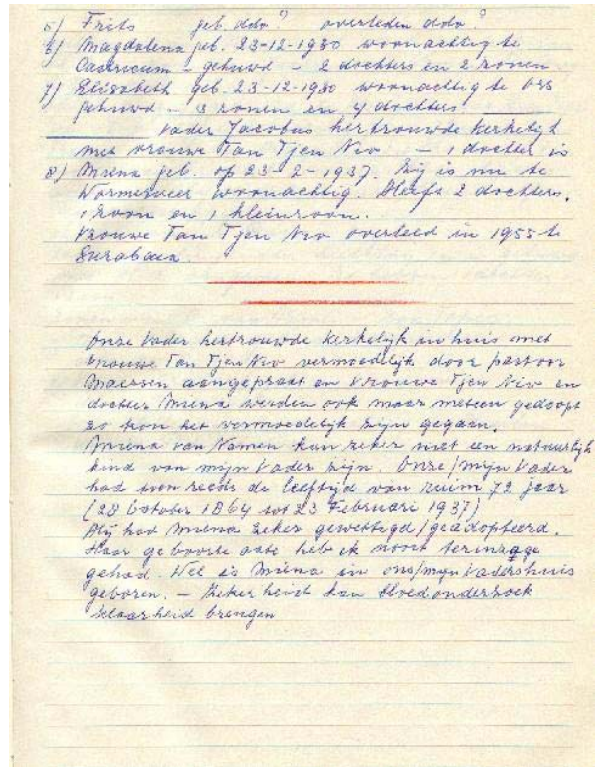 5) Frits geb. ddo? overleden ddo?
6) Magdalena geb. 23-12-1930 woonachtig te
Castricum - gehuwd - 2 dochters en 2 zonen
7) Elisabeth geb. 23-12-1930 woonachtig te Oss
gehuwd - 3 zonen en 4 dochters.
Vader Jacobus hertrouwde kerkelijk
met vrouwe Tan Tjen Nio - 1 dochter is
8) Miena geb. op 23-2-1937. Zij is nu te
Wormerveer woonachtig. Heeft 2 dochters,
1 zoon en 1 kleinzoon.
Vrouwe Tan Tjen Nio overleed in 1955 te
Surabaia.
Onze Vader hertrouwde kerkelijk in huis met
vrouwe Tan Tjen Nio vermoedelijk door pastoor
aangepraat en vrouwe Tjen Nio en
dochter Miena werden ook maar meteen gedoopt
zo kon het vermoedelijk zijn gegaan.
Miena van Namen kan zeker niet een natuurlijk
kind van mijn Vader zijn. Onze/mijn Vader
had toen reeds de leeftijd van ruim 72 jaar
(28 October 1864 tot 23 Februari 1937)
Hij had Miena zeker gewettigd/geadopteerd.
Haar geboorte acte heb ik nooit ter inzage
gehad. Wel is Miena in ons/mijn Vadershuis
geboren. - Zekerheid kan bloedonderzoek
klaarheid brengen